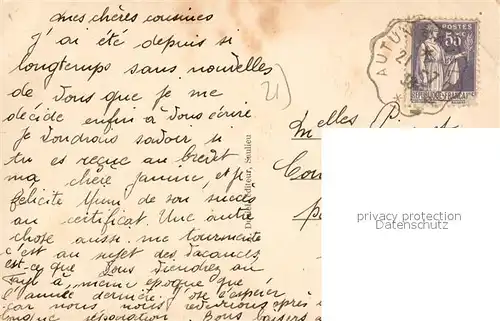 Mes chères cousines
J'ai été depuis si
longtemps sans nouvelles
de vous que je me
décide enfin à vous écrire
Je voudrais savoir si
tu es reçue au brevet
ma chère Janine, et je
félicite Mimi de son succès
au certificat. Une autre
chose aussi me tourmente
c'est au sujet des vacances
est-ce que vous viendrez au
Fayl à même époque que
l'année dernière. ose l'espérer
car nous nous reverrions après
longue séparation. Bons baisers
21)
éditeur, Saulieu
AUTUN
POSTES
55c
REPUBLIQUE FRANÇAISE
Melles
privacy protection
Datenschutz